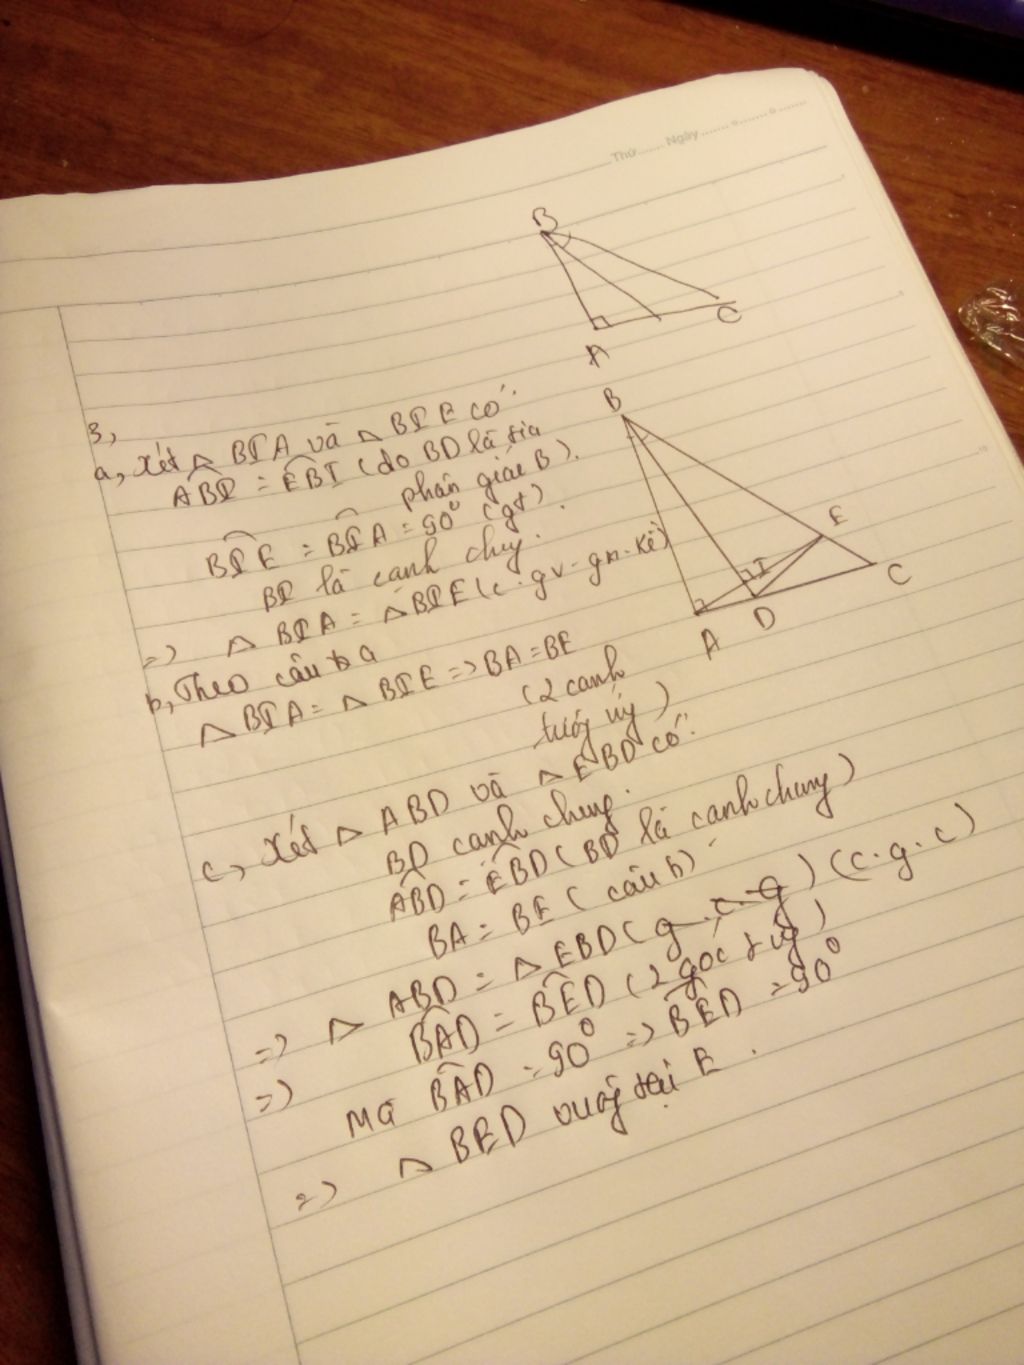 Thứ ........ Ngày ........
B
A
C
B
E
I
C
D
A
3,
a, Xét △ BIA và △ BIE có:
ABI = EBI (do BD là tia
phân giác B).
BIE = BIA = 90° (gt).
BI là cạnh chug.
=> △ BIA = △BIE (c.gv-gn.kề)
b, Theo câu a
△ BIA = △ BIE => BA = BE
(2 cạnh
tươg ứg)
c, Xét △ ABD và △ EBD có:
BD cạnh chug.
ABD = EBD (BD là cạnh chung)
BA = BE (câu b)
=> △ ABD = △ EBD (g.c.g) (c.g.c)
=> BAD = BED (2 góc t ứg)
Mà BAD = 90° => BED = 90°
=> △ BED vuôg tại E.